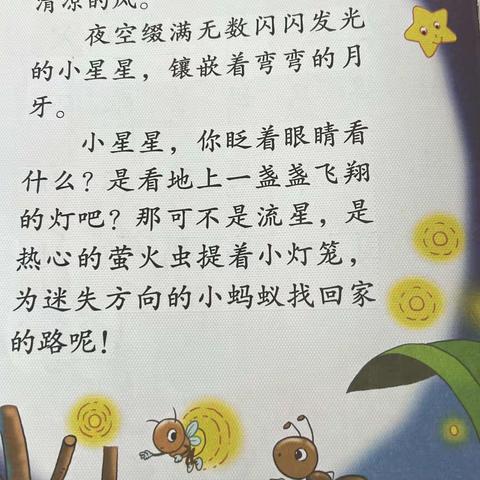 清凉的风。
夜空缀满无数闪闪发光
的小星星，镶嵌着弯弯的月
牙。
小星星，你眨着眼睛看
什么？是看地上一盏盏飞翔
的灯吧？那可不是流星，是
热心的萤火虫提着小灯笼，
为迷失方向的小蚂蚁找回家
的路呢！